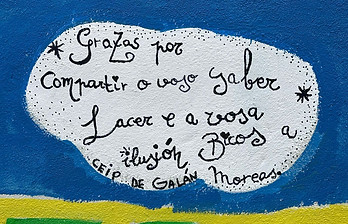 Grazas por
Compartir o voso saber
Lacer e a vosa
ilusión Bicos a
CEIP DE GALÁN Moreas.